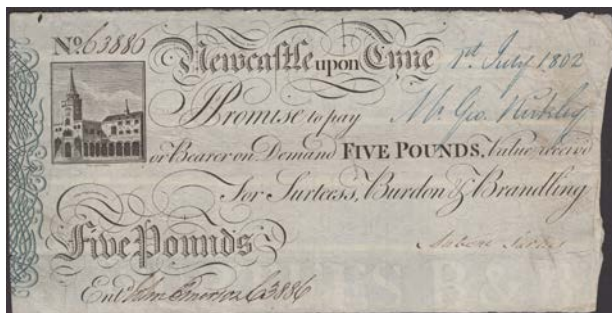 No. 63886 Newcastle upon Tyne 1st July 1802
Promise to pay Mr. Geo. Kirkley
or Bearer on Demand FIVE POUNDS, Value receiv'd
For Surtees, Burdon & Brandling
Five Pounds
Entd. 63886